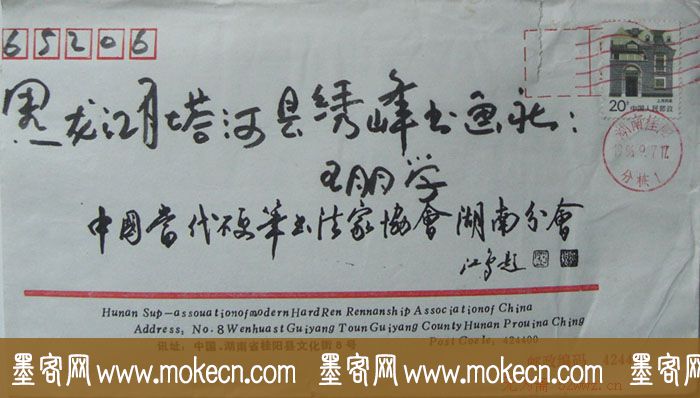 65206
20分
中国人民邮政
黑龙江省塔河县绣峰书画社：
王朋学
湖南桂阳
1996.9.7.17
分栋1
中國當代硬筆书法家協會湖南分會
江鸟题
Hunan Sup—assouationofmodern Hard Ren Rennanship Associationof China
Address, No. 8 Wenhuast Guiyang Toun Guiyang County Hunan Prouina Ching
讯址：中国·湖南省桂阳县文化街8号
Post Corle, 424400
邮政编码
墨客网 www.mokecn.com 墨客网 www.mokecn.com 墨客网